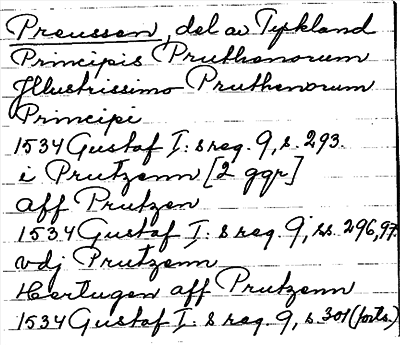 Preussen, del av Tyskland
Principis Pruthenorum
Jllustrissimo Pruthenorum
Principi
1534 Gustaf I:s reg. 9, s. 293.
i Prutzenn [2 ggr]
aff Prutzen
1534 Gustaf I:s reg. 9, ss. 296, 97.
vdj Prutzenn
Hertugen aff Prutzenn
1534 Gustaf I:s reg. 9, s. 301 (forts.)